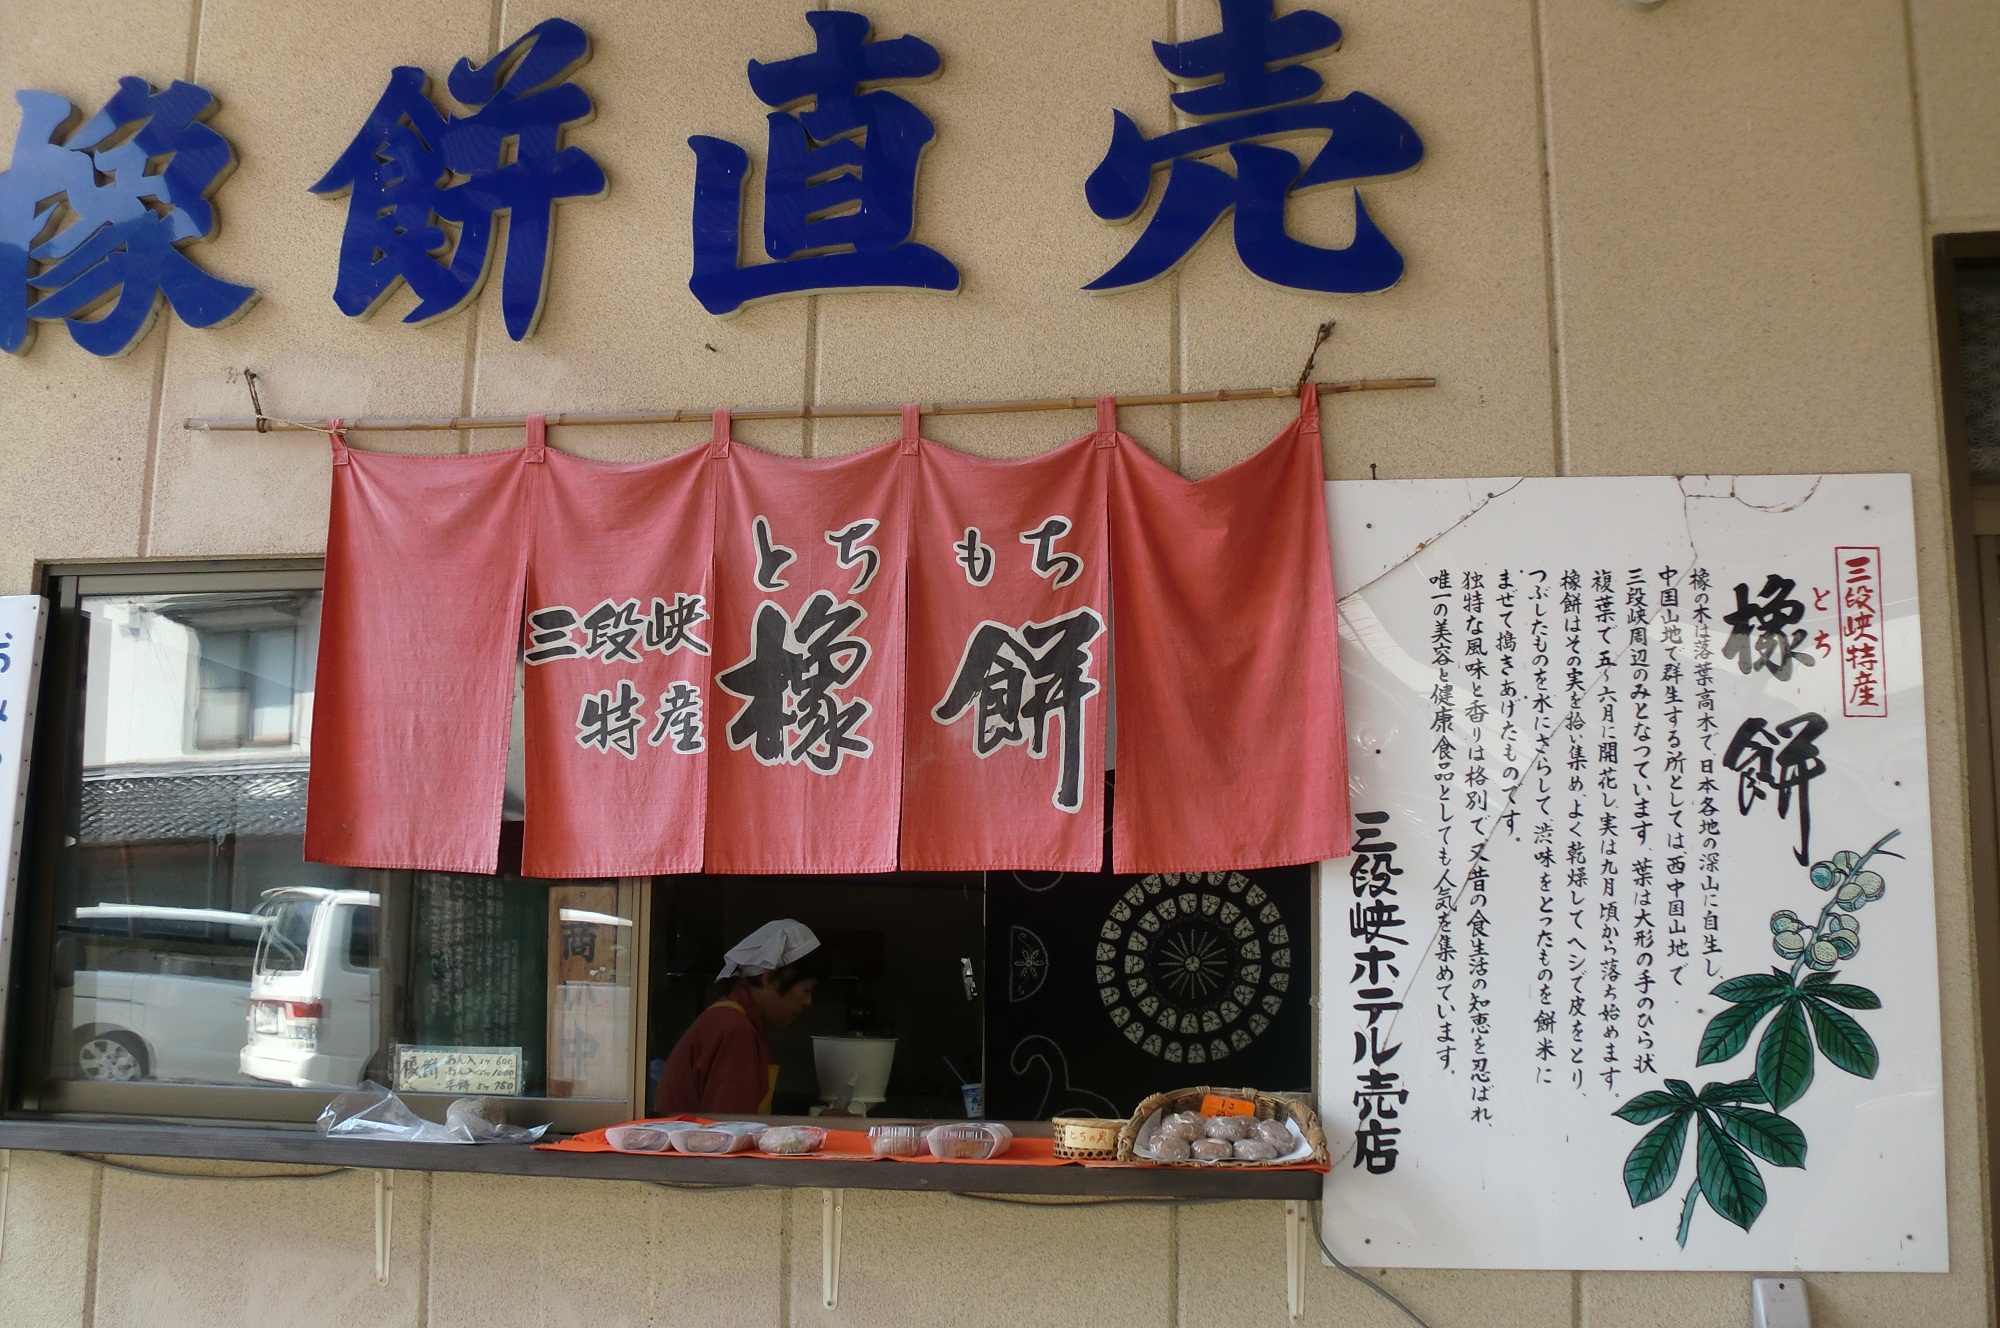 橡餅直売
とち もち
橡餅
三段峡
特産
三段峡特産
とち
橡餅
橡の木は落葉高木で、日本各地の深山に自生し、
中国山地で群生する所としては、西中国山地で
三段峡周辺のみとなつています。葉は大形の手のひら状
複葉で五〜六月に開花し、実は九月頃から落ち始めます。
橡餅はその実を拾い集め、よく乾燥してヘシで皮をとり、
つぶしたものを水にさらして、渋味をとつたものを餅米に
まぜて搗きあげたものです。
独特な風味と香りは格別で、又昔の食生活の知恵を忍ばれ、
唯一の美容と健康食品としても人気を集めています。
三段峡ホテル売店
商い中
橡餅
あん入
あん入
平餅 5ヶ 750
とちの実